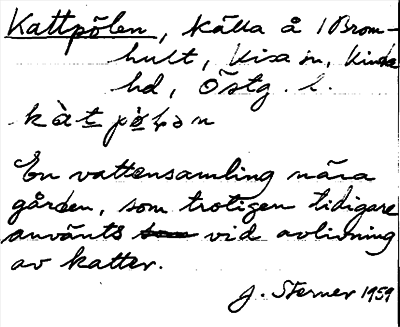 Kattpölen, källa å 1 Brom-
hult, Kisa sn, Kinda
hd, Östg. l.
kàt pø̀lən
En vattensamling nära
gården, som trotigen tidigare
använts vid avlivning
av katter.
J. Sterner 1959